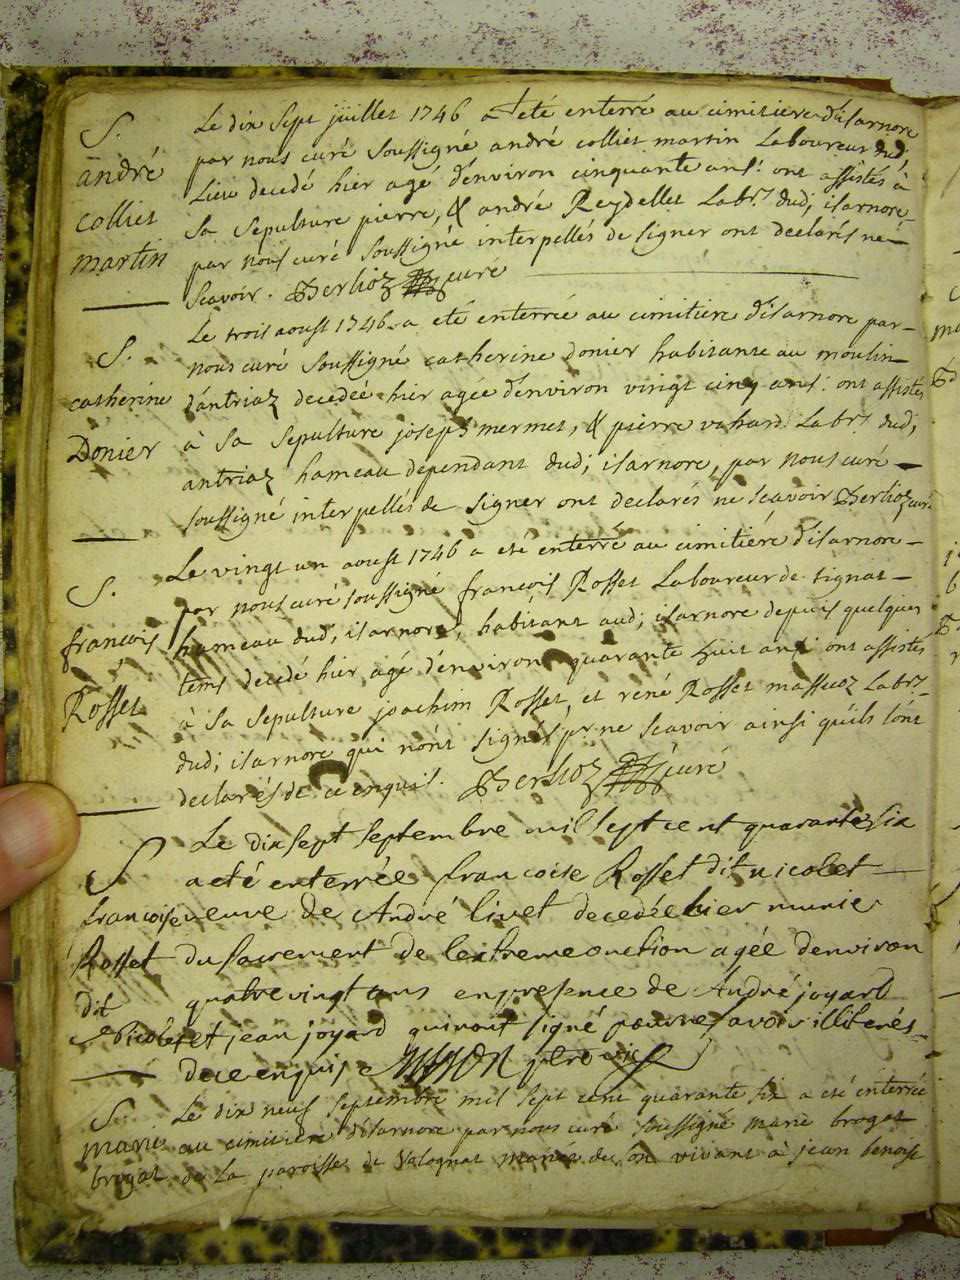 S.
andré
colliet
martin
Le dix sept juillet 1746 a été enterré au cimitiere d'isarnore
par nous curé soussigné andré colliet martin Laboureur dud;
Lieu decedé hier agé d'environ cinquante ans: ont assistés à
sa sepulture pierre, & andré Reydellet Labrs dud; isarnore,
par nous curé soussigné interpellés de signer ont declarés ne
scavoir. Berlioz curé
S.
catherine
Donier
Le trois aoust 1746 a eté enterrée au cimitiere d'isarnore par
nous curé soussigné catherine donier habitante au moulin
d'antriaz decedée hier agée d'environ vingt cinq ans: ont assistés
à sa sepulture joseph mermet, & pierre vuhard Labrs dud;
antriaz hameau dependant dud; isarnore, par nous curé
soussigné interpellés de signer ont declarés ne scavoir Berlioz curé
S.
francois
Rosset
Le vingt un aoust 1746 a eté enterré au cimitiére d'isarnore
par nous curé soussigné françois Rosset Laboureur de signat
hameau dud; isarnore, habitant aud; isarnore depuis quelques
tems decedé hier agé d'environ quarante huit ans ont assistés
à sa sepulture joachim Rosset, et rené Rosset massuoz Labrs
dud; isarnore qui n'ont signés pr ne scavoir ainsi qu'ils l'ont
declarés de ce enquis. Berlioz curé
S
francoise
Rosset
dit
Nicolet
Le dix sept septembre mil sept cent quarante six
a eté enterrée francoise Rosset dit nicolet
veuve de André livet decedée hier munie
du sacrement de lextreme onction agée denviron
quatre vingt ans en presence de André joyard
et jean joyard qui nont signé pour ne savoir illiterés
de ce enquis
S.
marie
brogat
Le dix neuf septembre mil sept cent quarante six a eté enterrée
au cimitière d'isarnore par nous curé soussigné marie brogat
de la paroisse de Valognat mariée du son vivant à jean benoist